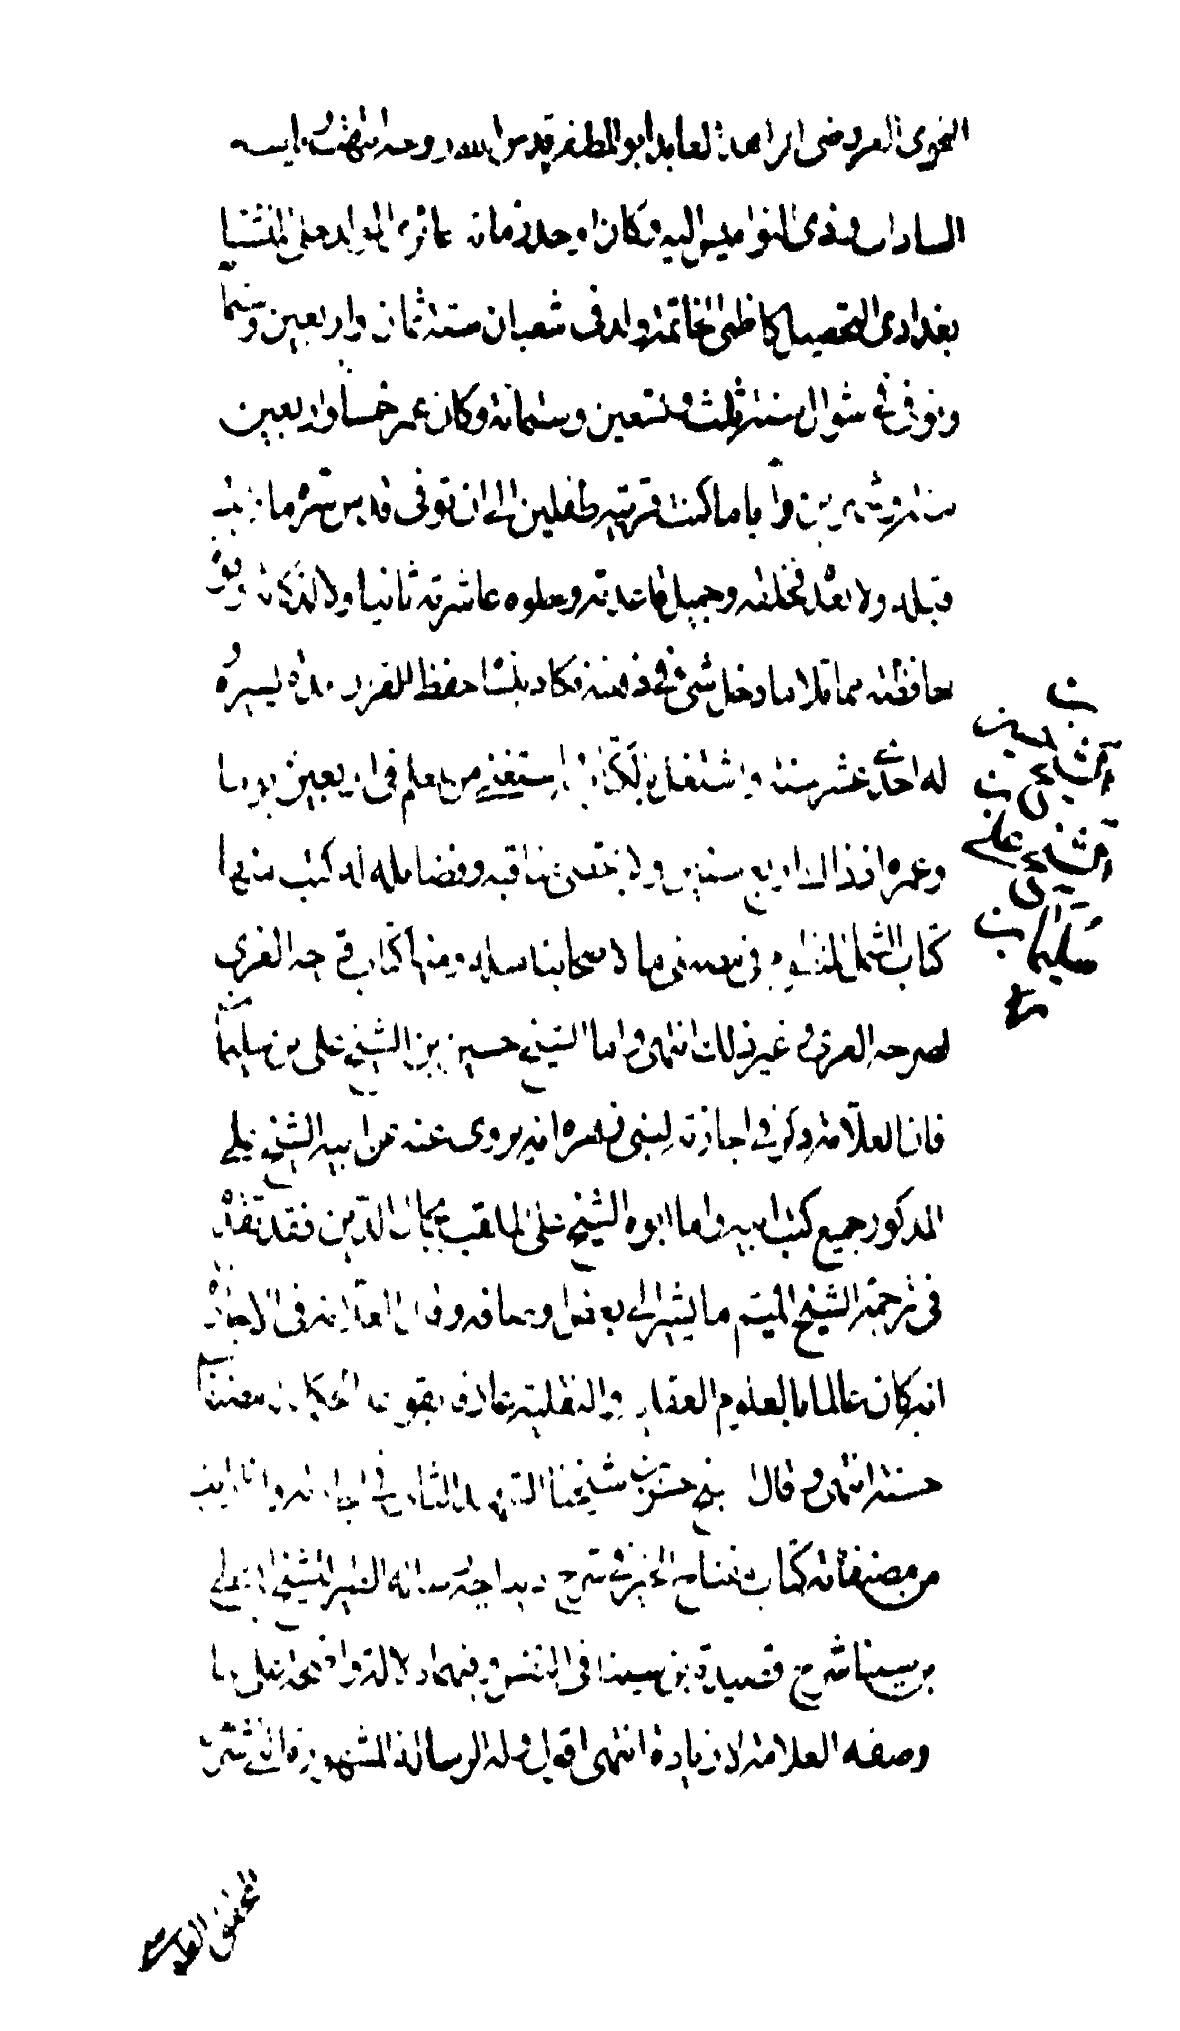 النحوى العروضى الزاهد العابد ابو المظفر قدس الله روحه انتهت رياسة
السادات وذوى النواميس اليه وكان اوحد زمانه حائرى المولد حلى المنشا
بغدادى التحصيل كاظمى الخاتمة ولد فى شعبان سنة ثمان واربعين وستما
وتوفى فى شوال سنة ثلث وتسعين وستمائة وكان عمره خمسا واربعين
سنة وشهرين واياما كنت قرينه طفلين الى ان توفى قدس سره ما رايت
قبله ولا بعده كخلقه وجميل قاعدته وحلو معاشرته ثانيا ولا لذكائه وقوة
حافظته مماثلا ما دخل شئ فى ذهنه فكاد ينساه حفظ القران مدة يسيرة
له احدى عشر سنة واشتغل بالكتابة استغنى من المعلم فى اربعين يوما
وعمره اذ ذاك اربع سنين ولا تحصى مناقبه وفضائله له كتب منها
كتاب الشمل المنظوم فى مصنفى ما لاصحابنا مثله ومنها كتاب فرحة الغرى
بصرحة الغرى وغير ذلك انتهى واما الشيخ حسين بن الشيخ على بن سليمان
فان العلامة ذكر فى اجازته لبنى زهره انه يروى عنه عن ابيه الشيخ على
المذكور جميع كتب ابيه واما ابوه الشيخ على الملقب بجمال الدين فقد تقدم
فى ترجمة الشيخ الميثم ما يشير الى بعض اوصافه وقال العلامة فى الاجازة
انه كان عالما بالعلوم العقلية والنقلية عارفا بقواعد الحكماء له مصنفات
حسنة انتهى وقال الشيخ حسن بن شيخنا الشهيد الثانى فى اجازته وانا رايت
من مصنفاته كتاب مفتاح الخير فى شرح ديباجة رسالة الطير للشيخ ابى على
بن سينا شرح قصيدة بن سينا فى النفس وفيهما دلالة واضحة على ما
وصفه العلامة لا زيادة انتهى اقول وله الرسالة المشهورة التى شرحها
المحقق الطوسى
بن
الشيخ حسين
بن
الشيخ على
بن
سليمان